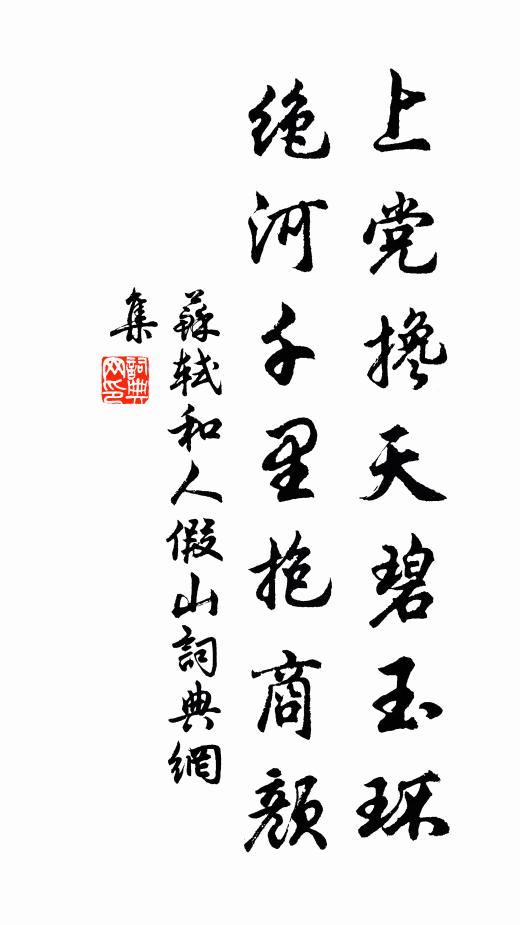 上党搀天碧玉环
绝河千里抱商颜
蘇軾和人假山詞典網
集
詞典
网印